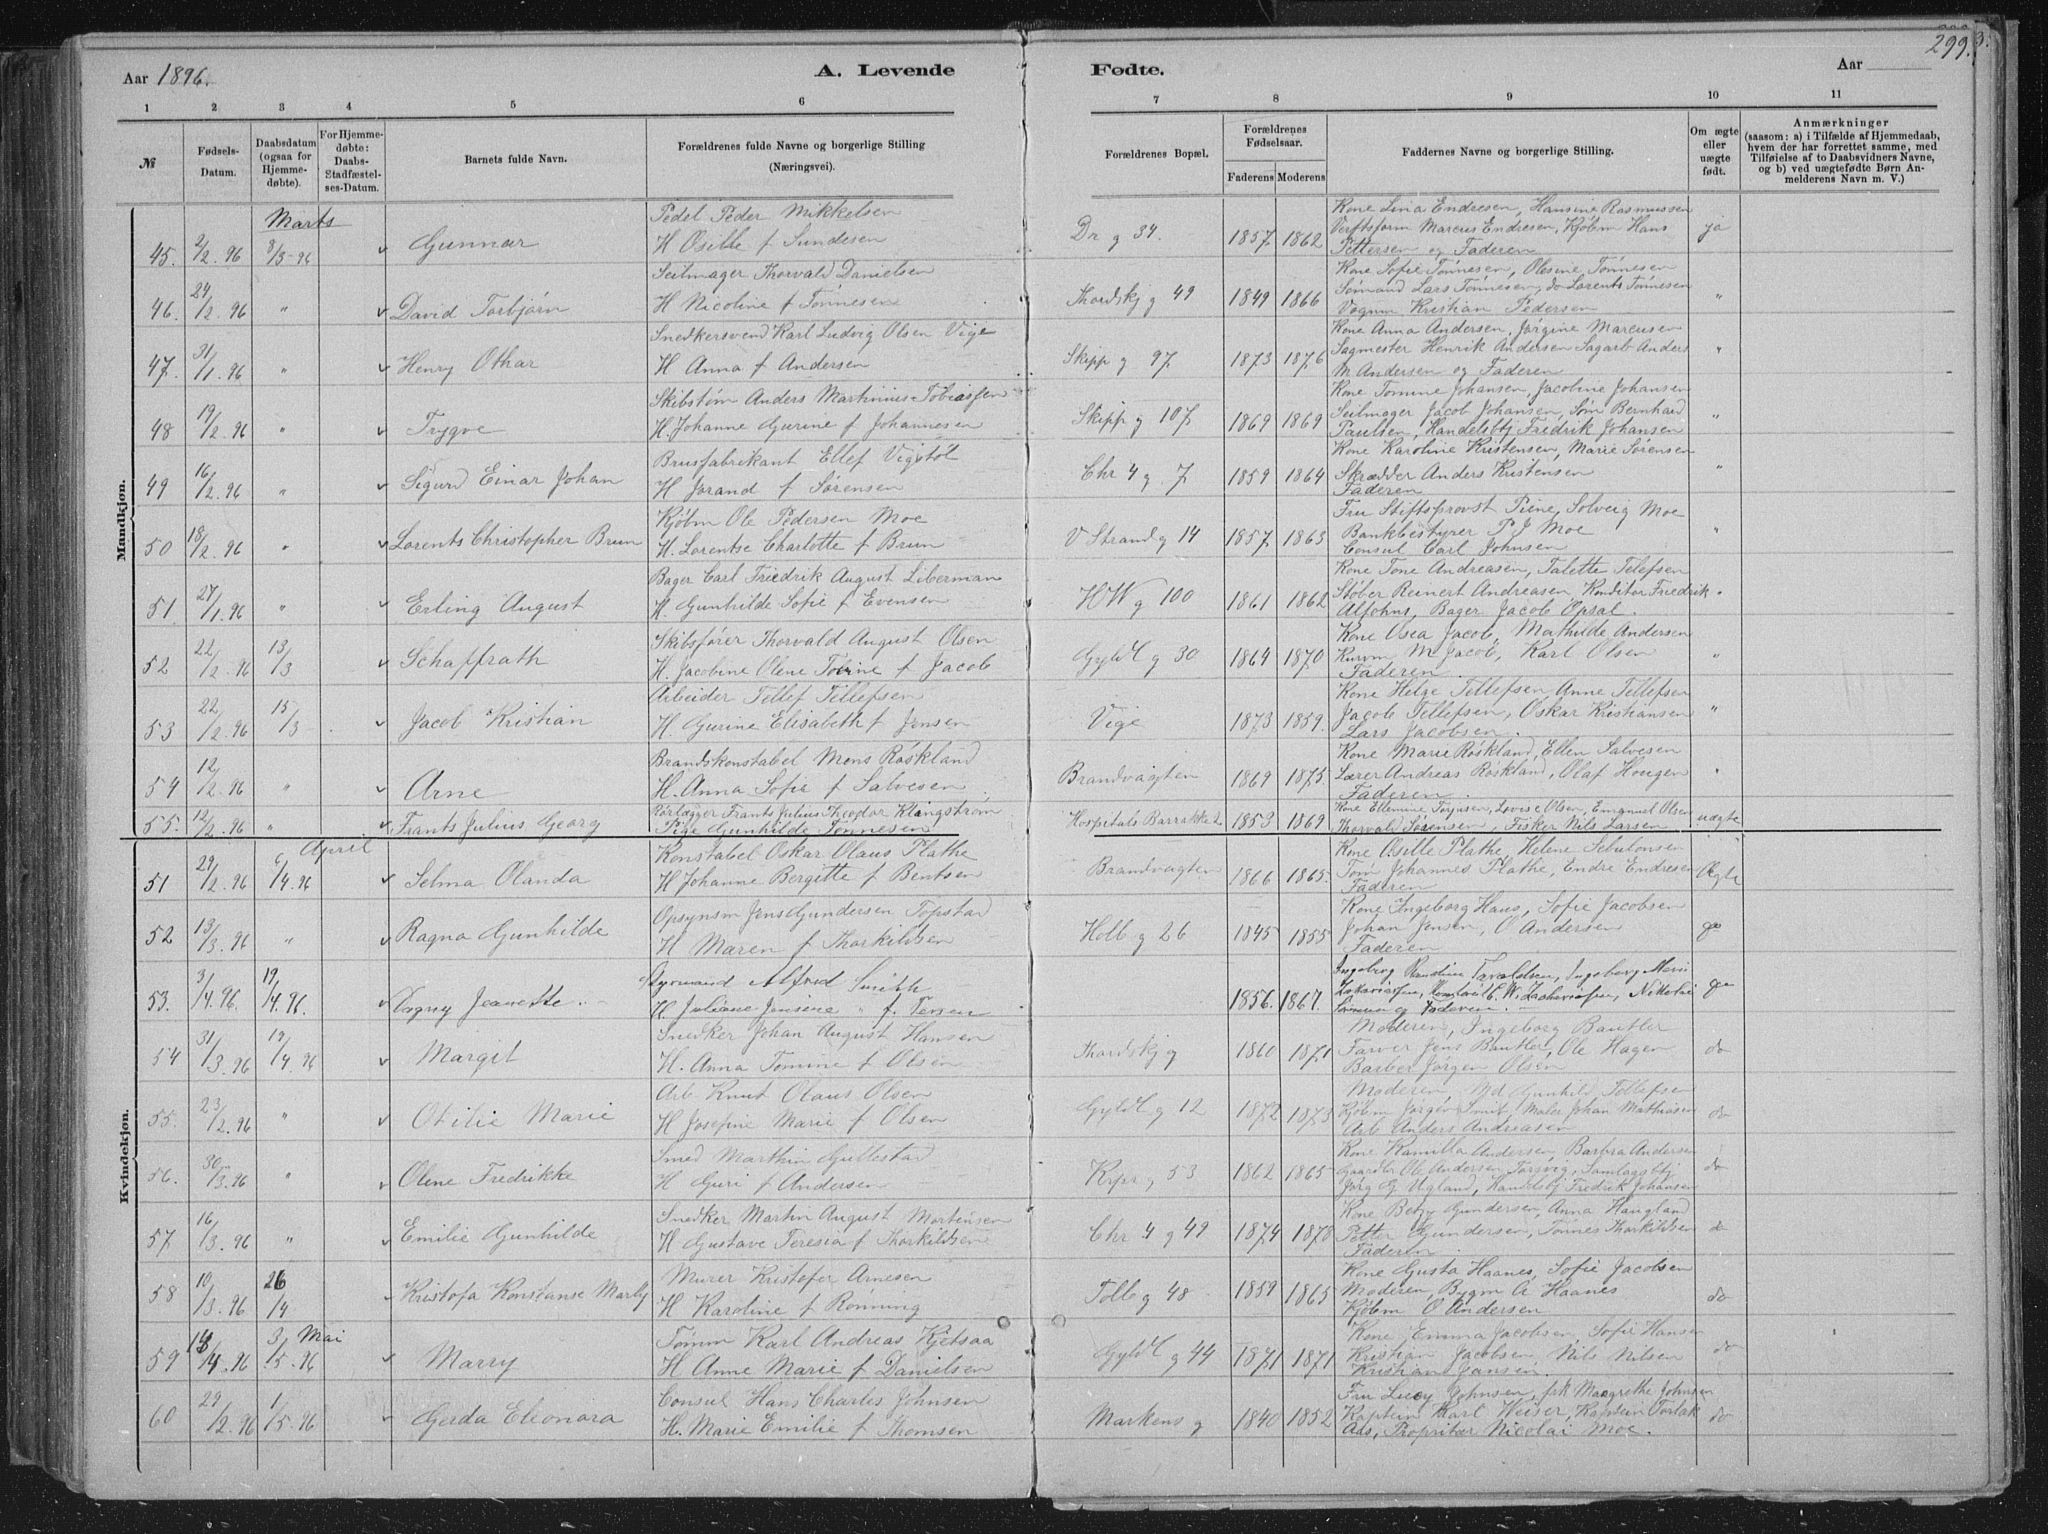 Aar 1896.
A. Levende
Fødte.
Aar
299.
1 2 3 4 5 6 7 8 9 10 11
№
Fødsels-Datum.
Daabsdatum (ogsaa for Hjemmedøbte).
For Hjemmedøbte: Daabs-Stadfæstelses-Datum.
Barnets fulde Navn.
Forældrenes fulde Navne og borgerlige Stilling (Næringsvei).
Forældrenes Bopæl.
Forældrenes Fødselsaar.
Faderens Moderens
Faddernes Navne og borgerlige Stilling.
Om ægte eller uægte født.
Anmærkninger
(saasom: a) i Tilfælde af Hjemmedaab, hvem der har forrettet samme, med Tilføielse af to Daabsvidners Navne, og b) ved uægtefødte Børn Anmelderens Navn m. V.)
Mandkjøn.
Marts
Pedel Peder Mikkelsen
Kone Lina Endresen, Hansine Rasmussen
45. 2/2. 96 8/3-96 Gunnar H Osille f Sundesen Dr g 34. 1857 1862 Verftsform Marcus Endresen, Kjøbm Hans ja
Pettersen og Faderen
Seilmager Thorvald Danielsen
Kone Sofie Tønnesen, Olesine Tønnesen
46. 24/2. 96 " David Torbjørn H Nicoline f Tønnesen Thordskj g 49 1849 1866 Sømand Lars Tønnesen, do Lorents Tønnesen "
Vognm Kristian Pedersen
Snedkersvend Karl Ludvig Olsen Vige
Kone Anna Andersen, Jørgine Marcusen
47. 31/1. 96 " Henry Othar H Anna f Andersen Skipp g 97 1873 1876 Sagmester Henrik Andersen Sagarb Anders "
M Andersen og Faderen
Skibstøm Anders Martinius Tobiassen
Kone Tomine Johansen, Jacobine Johansen
48 19/2. 96 " Trygve H. Johanne Gurine f Johannesen Skipp g 107 1869 1869 Seilmager Jacob Johansen, Søm Bernhard "
Paulsen, Handelsbtj Fredrik Johansen
Brusfabrikant Ellef Vigstøl
Kone Karoline Kristensen, Marie Sørensen
49 16/2. 96 " Sigurd Einar Johan H Jorand f Sørensen Chr 4 g 7 1859 1864 Skrædder Anders Kristensen "
Faderen
Kjøbm Ole Pedersen Moe
Fru Stiftsprovst Piene, Solveig Moe
50 18/2. 96 " Lorents Christopher Brun H. Lorentse Charlotte f Brun V Strand g 14 1857 1863 Bankbestyrer P J Moe "
Consul Carl Johnsen
Bager Carl Friedrik August Liberman
Kone Tone Andreasen, Talette Telefsen
51. 27/1. 96 " Erling August H. Gunhilde Sofie f Evensen HW g 100 1861 1862 Støber Reinert Andreasen, Konditor Friedrik "
Alfohns, Bager Jacob Opsal.
Skibsfører Thorvald August Olsen
Kone Osea Jacob, Mathilde Andersen
52 22/2. 96 13/3 Schaffrath H. Jacobine Olene Tomine f Jacob Gyldl g 30 1864 1870 Kurvm M Jacob, Karl Olsen "
Faderen.
Arbeider Tellef Tellefsen
Kone Helge Tellefsen, Anne Tellefsen
53 22/2. 96 15/3 Jacob Kristian H Gurine Elisabeth f Jensen Vige 1873 1859. Jacob Tellefsen, Oskar Kristiansen "
Lars Jacobsen.
Brandskonstabel Mons Røskland
Kone Marie Røskland, Ellen Salvesen
54 12/2. 96 " Arne H. Anna Sofie f Salvesen Brandvagten 1869 1875. Lærer Andreas Røskland, Olaf Hougen "
Faderen
Rørlægger Frants Julius Theodor Klangstrøm
Kone Ellemine Torgusen, Lovise Olsen, Emanuel Olsen
55. 12/2. 96 " Frants Julius Georg Pige Gunhilde Tønnesen Hospitals Barrakke 2 1853 1869 Thorvald Sørensen, Fisker Nils Larsen uægte
Kvindekjøn.
April
Konstabel Oskar Olaus Plathe
Kone Osille Plathe, Helene Sebulonsen
51 29/2. 96 6/4. 96 Selma Olanda H Johanne Bergitte f Bentsen Brandvagten 1866 1865. Tom Johannes Plathe, Endre Endresen Ægte
Faderen
Opsynsm Jens Gundersen Topstad
Kone Ingeborg Haus, Sofie Jacobsen
52 13/3. 96 " Ragna Gunhilde H Maren f Thorkildsen Holb g 26 1845 1855 Johan Jensen, O Andersen
Faderen
Styrmand Alfred Smith
53. 3/4. 96 19/4. 96. Dagny Jeanette H. Juliane Jensine f. Tersen 1856. 1867. Zachariassen, W. Zachariassen, Nikolai
og Faderen.
Snedker Johan August Hansen
Moderen, Ingeborg Bautler
54 31/3. 96 19/4. 96 Margit H. Anna Tomine f Olsen Thordskj g 1860 1871 Farver Jens Bautler, Ole Hagen do
Barber Jørgen Olsen
Arb Knut Olaus Olsen
Moderen, Gunhild Tollefsen
55. 23/2. 96 " Otilie Marie H Josefine Marie f Olsen Gyldl g 12 1872 1873 Kjøbm Jørgen Smit, Maler Johan Mathiasen do
Arb Anders Andreasen
Smed Marthin Gullestad
Kone Kamilla Andersen, Barbra Andersen
56. 30/3. 96 " Olene Fredrikke H Guri f Andersen Krpr g 53 1862 1865 Gaardbr Ole Andersen Sørsvig, Samlagsbtj do
Jørg G Ugland, Handelsbtj Fredrik Johansen
Snedker Martin August Mortensen
Kone Betzy Gundersen, Anna Haugland
57 16/3. 96 " Emilie Gunhilde H Gustave Teresia f Thorkildsen Chr 4 g 49 1874 1878 Petter Gundersen, Tønnes Thorkildsen do
Faderen.
Murer Kristofer Arnesen
Kone Gusta Haanes, Sofie Jacobsen
58 10/3. 96 26/4 Kristofa Konstanse Marly H Karoline f Rønning Tolb g 48 1859 1865 Moderen, Bygm A Haanes do
Kjøbm O Andersen
Mai
Tømm Karl Andreas Kjetsaa
Kone Emma Jacobsen, Sofie Hansen
59 13/4. 96 3/5. 96 Marry H Anne Marie f Danielsen Gyldl g 44 1871 1871 Kristian Jacobsen, Nils Nilsen do
Kristian Jansen
Consul Hans Charles Johnsen
Fru Lucy Johnsen, frk Margrethe Johnsen
60 29/2. 96 1/5. 96 Gerda Eleonora H. Marie Emilie f Thomsen Markens g 1840 1852 Kaptein Karl Weiser, Kaptein Torlak do
Ads, Propritær Nicolai Moe.